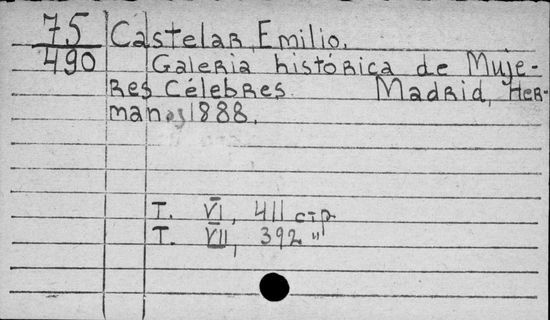 75 Castelar, Emilio.
490 Galeria histórica de Muje-
res Célebres Madrid, Her-
man 1888.
T. VI, 411 стр
T. VII, 392 "